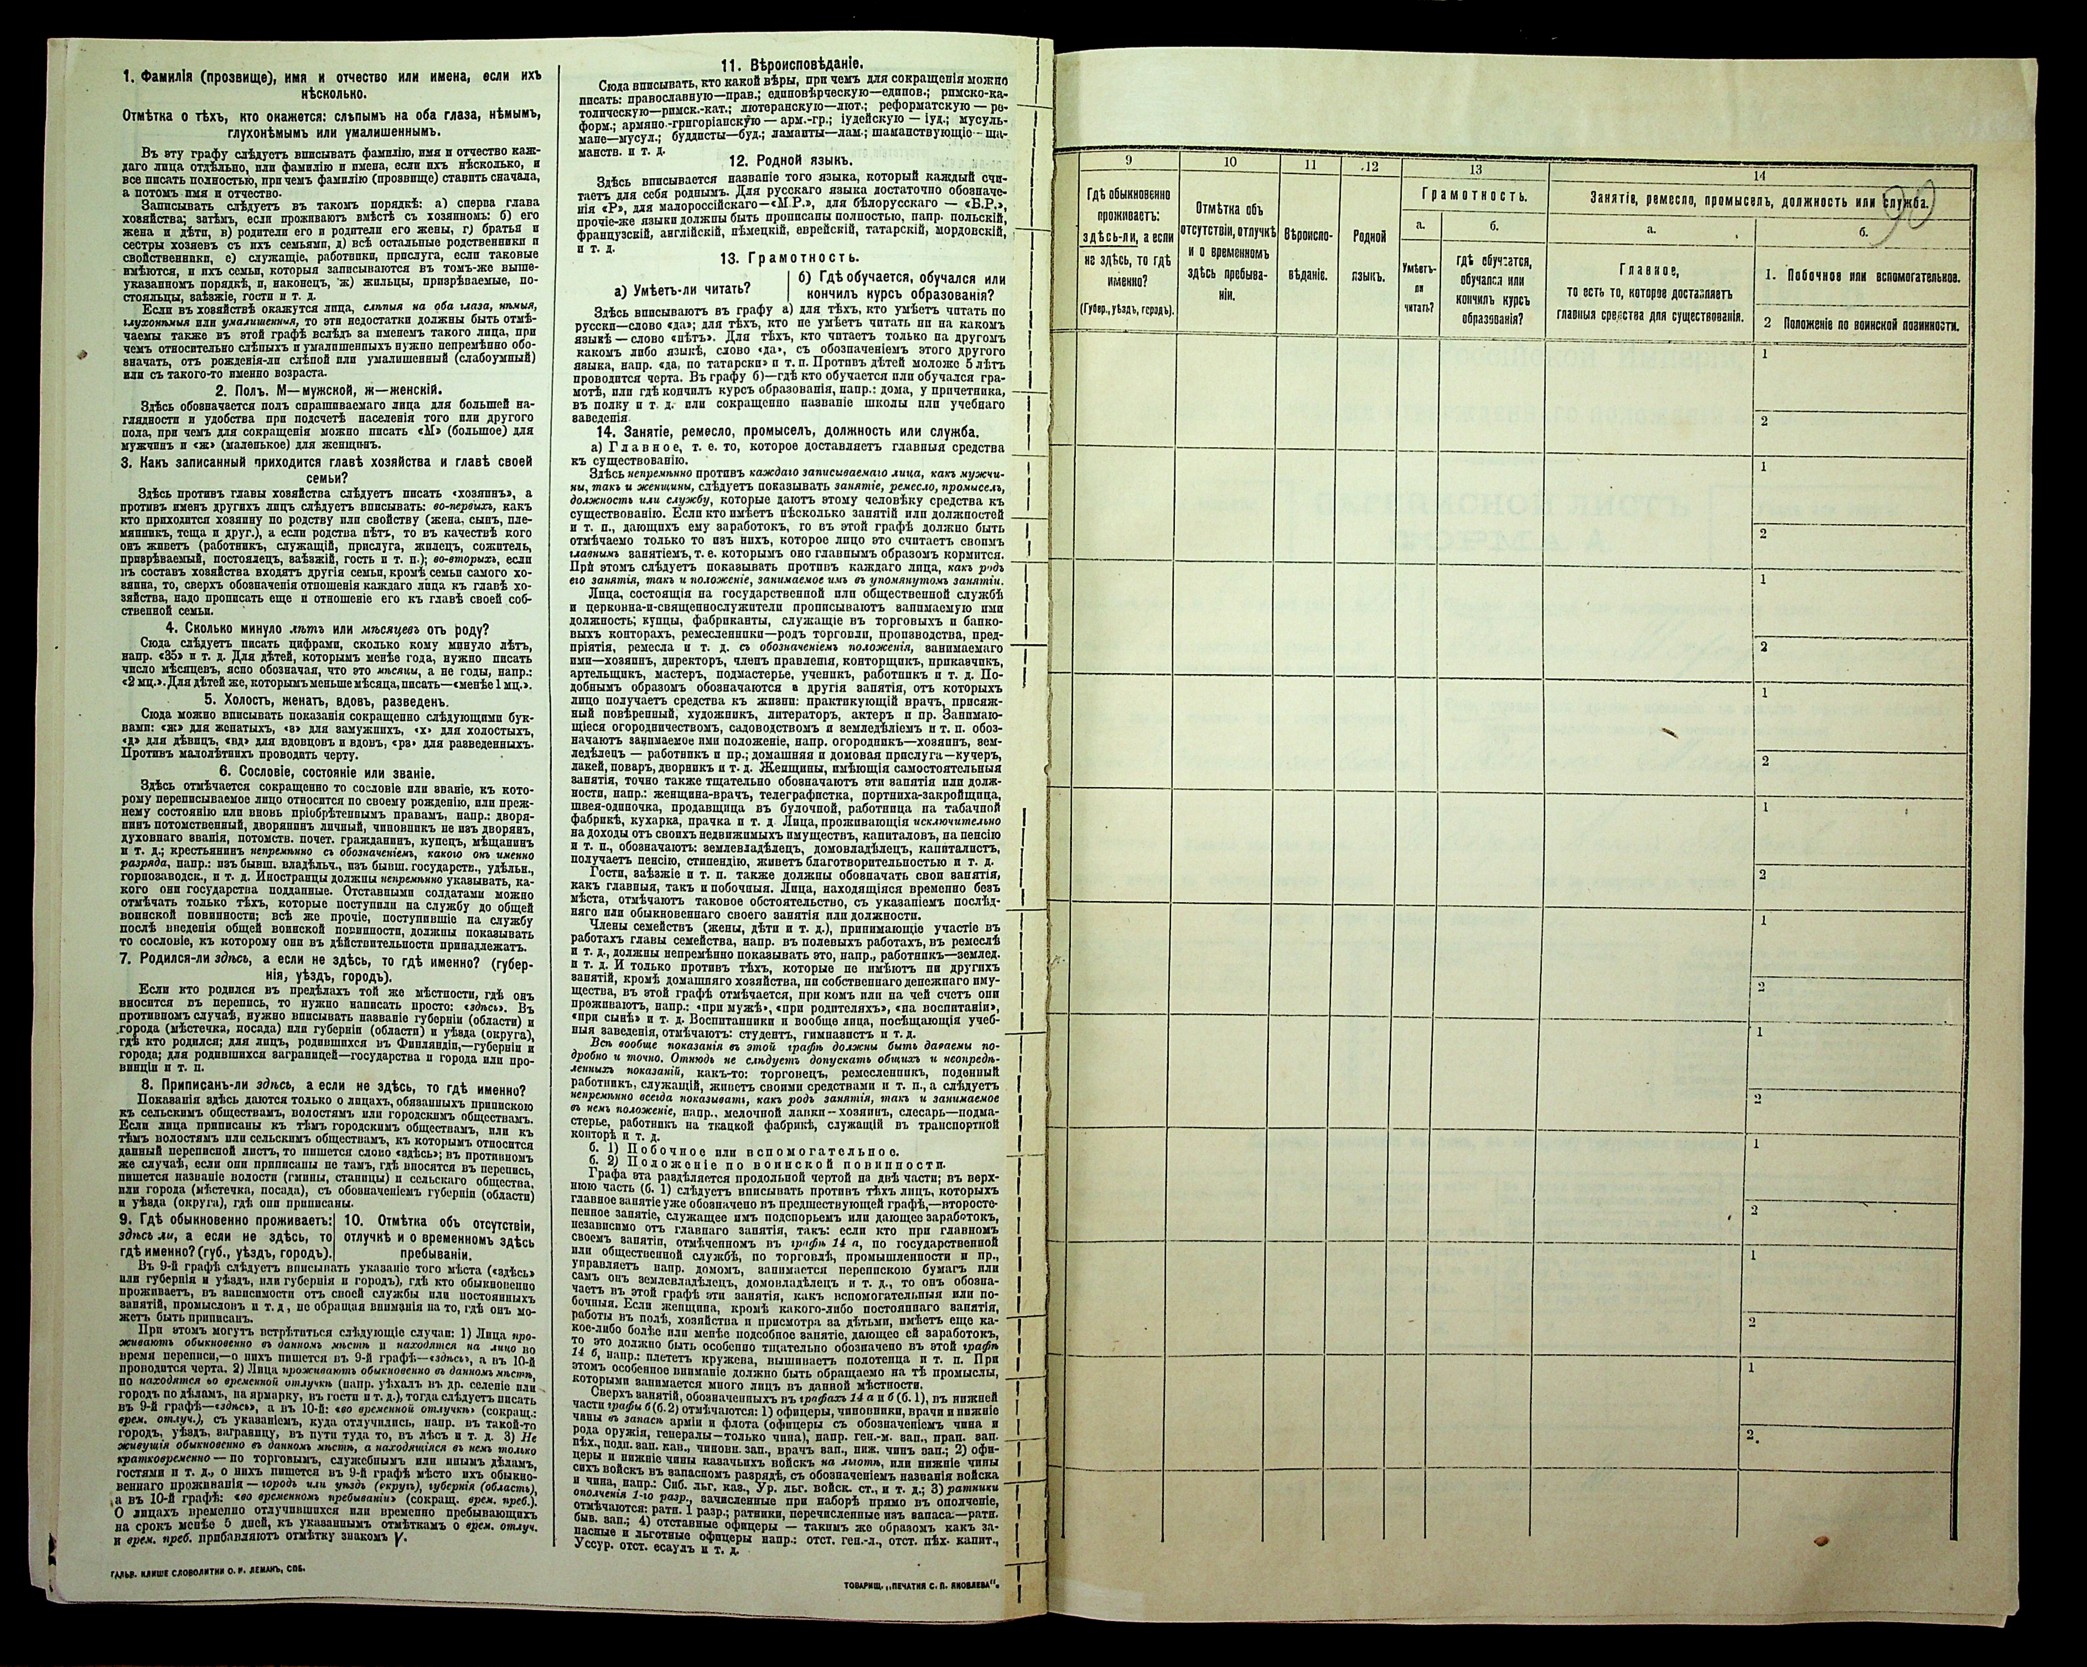 1. Фамилія (прозвище), имя и отчество или имена, если ихъ
нѣсколько.
Отмѣтка о тѣхъ, кто окажется: слѣпымъ на оба глаза, нѣмымъ,
глухонѣмымъ или умалишеннымъ.
Въ эту графу слѣдуетъ вписывать фамилію, имя и отчество каж-
даго лица отдѣльно, или фамилію и имена, если ихъ нѣсколько, и
все писать полностью, при чемъ фамилію (прозвище) ставить сначала,
а потомъ имя и отчество.
Записывать слѣдуетъ въ такомъ порядкѣ: а) сперва глава
хозяйства; затѣмъ, если проживаютъ вмѣстѣ съ хозяиномъ: б) его
жена и дѣти, в) родители его и родители его жены, г) братья и
сестры хозяевъ съ ихъ семьями, д) всѣ остальные родственники и
свойственники, е) служащіе, работники, прислуга, если таковые
имѣются, и ихъ семьи, которыя записываются въ томъ-же выше-
указанномъ порядкѣ, и, наконецъ, ж) жильцы, призрѣваемые, по-
стояльцы, заѣзжіе, гости и т. д.
Если въ хозяйствѣ окажутся лица, слѣпыя на оба глаза, нѣмыя,
глухонѣмыя или умалишенныя, то эти недостатки должны быть отмѣ-
чаемы также въ этой графѣ вслѣдъ за именемъ такого лица, при
чемъ относительно слѣпыхъ и умалишенныхъ нужно непремѣнно обо-
значать, отъ рожденія-ли слѣпой или умалишенный (слабоумный)
или съ такого-то именно возраста.
2. Полъ. М—мужской, ж—женскій.
Здѣсь обозначается полъ спрашиваемаго лица для большей на-
глядности и удобства при подсчетѣ населенія того или другого
пола, при чемъ для сокращенія можно писать «М» (большое) для
мужчинъ и «ж» (маленькое) для женщинъ.
3. Какъ записанный приходится главѣ хозяйства и главѣ своей
семьи?
Здѣсь противъ главы хозяйства слѣдуетъ писать «хозяинъ», а
противъ именъ другихъ лицъ слѣдуетъ вписывать: во-первыхъ, какъ
кто приходится хозяину по родству или свойству (жена, сынъ, пле-
мянникъ, теща и друг.), а если родства нѣтъ, то въ качествѣ кого
онъ живетъ (работникъ, служащій, прислуга, жилецъ, сожитель,
призрѣваемый, постоялецъ, заѣзжій, гость и т. п.); во-вторыхъ, если
въ составъ хозяйства входятъ другія семьи, кромѣ семьи самого хо-
зяина, то, сверхъ обозначенія отношенія каждаго лица къ главѣ хо-
зяйства, надо прописать еще и отношеніе его къ главѣ своей соб-
ственной семьи.
4. Сколько минуло лѣтъ или мѣсяцевъ отъ роду?
Сюда слѣдуетъ писать цифрами, сколько кому минуло лѣтъ,
напр. «35» и т. д. Для дѣтей, которымъ менѣе года, нужно писать
число мѣсяцевъ, ясно обозначая, что это мѣсяцы, а не годы, напр.:
«2 мц.». Для дѣтей же, которымъ меньше мѣсяца, писать—«менѣе 1 мц.».
5. Холостъ, женатъ, вдовъ, разведенъ.
Сюда можно вписывать показанія сокращенно слѣдующими бук-
вами: «ж» для женатыхъ, «з» для замужнихъ, «х» для холостыхъ,
«д» для дѣвицъ, «вд» для вдовцовъ и вдовъ, «рз» для разведенныхъ.
Противъ малолѣтнихъ проводить черту.
6. Сословіе, состояніе или званіе.
Здѣсь отмѣчается сокращенно то сословіе или званіе, къ кото-
рому переписываемое лицо относится по своему рожденію, или преж-
нему состоянію или вновь пріобрѣтеннымъ правамъ, напр.: дворя-
нинъ потомственный, дворянинъ личный, чиновникъ не изъ дворянъ,
духовнаго званія, потомств. почет. гражданинъ, купецъ, мѣщанинъ
и т. д.; крестьянинъ непремѣнно съ обозначеніемъ, какого онъ именно
разряда, напр.: изъ бывш. владѣльч., изъ бывш. государств., удѣльн.,
горнозаводск., и т. д. Иностранцы должны непремѣнно указывать, ка-
кого они государства подданные. Отставными солдатами можно
отмѣчать только тѣхъ, которые поступили на службу до общей
воинской повинности; всѣ же прочіе, поступившіе на службу
послѣ введенія общей воинской повинности, должны показывать
то сословіе, къ которому они въ дѣйствительности принадлежатъ.
7. Родился-ли здѣсь, а если не здѣсь, то гдѣ именно? (губер-
нія, уѣздъ, городъ).
Если кто родился въ предѣлахъ той же мѣстности, гдѣ онъ
вносится въ перепись, то нужно написать просто: «здѣсь». Въ
противномъ случаѣ, нужно вписывать названіе губерніи (области) и
города (мѣстечка, посада) или губерніи (области) и уѣзда (округа),
гдѣ кто родился; для лицъ, родившихся въ Финляндіи,—губерніи и
города; для родившихся заграницей—государства и города или про-
винціи и т. п.
8. Приписанъ-ли здѣсь, а если не здѣсь, то гдѣ именно?
Показанія здѣсь даются только о лицахъ, обязанныхъ припискою
къ сельскимъ обществамъ, волостямъ или городскимъ обществамъ.
Если лица приписаны къ тѣмъ городскимъ обществамъ, или къ
тѣмъ волостямъ или сельскимъ обществамъ, къ которымъ относится
данный переписной листъ, то пишется слово «здѣсь»; въ противномъ
же случаѣ, если они приписаны не тамъ, гдѣ вносятся въ перепись,
пишется названіе волости (гмины, станицы) и сельскаго общества,
или города (мѣстечка, посада), съ обозначеніемъ губерніи (области)
и уѣзда (округа), гдѣ они приписаны.
9. Гдѣ обыкновенно проживаетъ:
здѣсь ли, а если не здѣсь, то
гдѣ именно? (губ., уѣздъ, городъ).
10. Отмѣтка объ отсутствіи,
отлучкѣ и о временномъ здѣсь
пребываніи.
Въ 9-й графѣ слѣдуетъ вписывать указаніе того мѣста («здѣсь»
или губернія и уѣздъ, или губернія и городъ), гдѣ кто обыкновенно
проживаетъ, въ зависимости отъ своей службы или постоянныхъ
занятій, промысловъ и т. д., не обращая вниманія на то, гдѣ онъ мо-
жетъ быть приписанъ.
При этомъ могутъ встрѣтиться слѣдующіе случаи: 1) Лица про-
живаютъ обыкновенно въ данномъ мѣстѣ и находятся на лицо во
время переписи,—о нихъ пишется въ 9-й графѣ—«здѣсь», а въ 10-й
проводится черта. 2) Лица проживаютъ обыкновенно въ данномъ мѣстѣ,
но находятся во временной отлучкѣ (напр. уѣхалъ въ др. селеніе или
городъ по дѣламъ, на ярмарку, въ гости и т. д.), тогда слѣдуетъ писать
въ 9-й графѣ—«здѣсь», а въ 10-й: «во временной отлучкѣ» (сокращ.:
врем. отлуч.), съ указаніемъ, куда отлучились, напр. въ такой-то
городъ, уѣздъ, заграницу, въ пути туда то, въ лѣсъ и т. д. 3) Не
живущія обыкновенно въ данномъ мѣстѣ, а находящіяся въ немъ только
кратковременно—по торговымъ, служебнымъ или инымъ дѣламъ,
гостями и т. д., о нихъ пишется въ 9-й графѣ мѣсто ихъ обыкно-
веннаго проживанія—городъ или уѣздъ (округъ), губернія (область),
а въ 10-й графѣ: «во временномъ пребываніи» (сокращ. врем. преб.).
О лицахъ временно отлучившихся или временно пребывающихъ
на срокъ менѣе 5 дней, къ указаннымъ отмѣткамъ о врем. отлуч.
и врем. преб. прибавляютъ отмѣтку знакомъ V.
ГАЛЬВ. КЛИШЕ СЛОВОЛИТНИ О. И. ЛЕМАНЪ, СПБ.
11. Вѣроисповѣданіе.
Сюда вписывать, кто какой вѣры, при чемъ для сокращенія можно
писать: православную—прав.; единовѣрческую—единов.; римско-ка-
толическую—римск.-кат.; лютеранскую—лют.; реформатскую—ре-
форм.; армяно-григоріанскую—арм.-гр.; іудейскую—іуд.; мусуль-
мане—мусул.; буддисты—буд.; ламаиты—лам.; шаманствующіе—ша-
манств. и т. д.
12. Родной языкъ.
Здѣсь вписывается названіе того языка, который каждый счи-
таетъ для себя роднымъ. Для русскаго языка достаточно обозначе-
нія «Р», для малороссійскаго—«М.Р.», для бѣлорусскаго—«Б.Р.»,
прочіе-же языки должны быть прописаны полностью, напр. польскій,
французскій, англійскій, нѣмецкій, еврейскій, татарскій, мордовскій,
и т. д.
13. Грамотность.
а) Умѣетъ-ли читать?
б) Гдѣ обучается, обучался или
кончилъ курсъ образованія?
Здѣсь вписываютъ въ графу а) для тѣхъ, кто умѣетъ читать по
русски—слово «да»; для тѣхъ, кто не умѣетъ читать ни на какомъ
языкѣ—слово «нѣтъ». Для тѣхъ, кто читаетъ только на другомъ
какомъ либо языкѣ, слово «да», съ обозначеніемъ этого другого
языка, напр. «да, по татарски» и т. п. Противъ дѣтей моложе 5 лѣтъ
проводится черта. Въ графу б)—гдѣ кто обучается или обучался гра-
мотѣ, или гдѣ кончилъ курсъ образованія, напр.: дома, у причетника,
въ полку и т. д. или сокращенно названіе школы или учебнаго
заведенія.
14. Занятіе, ремесло, промыселъ, должность или служба.
а) Главное, т. е. то, которое доставляетъ главныя средства
къ существованію.
Здѣсь непремѣнно противъ каждаго записываемаго лица, какъ мужчи-
ны, такъ и женщины, слѣдуетъ показывать занятіе, ремесло, промыселъ,
должность или службу, которые даютъ этому человѣку средства къ
существованію. Если кто имѣетъ нѣсколько занятій или должностей
и т. п., дающихъ ему заработокъ, то въ этой графѣ должно быть
отмѣчаемо только то изъ нихъ, которое лицо это считаетъ своимъ
главнымъ занятіемъ, т. е. которымъ оно главнымъ образомъ кормится.
При этомъ слѣдуетъ показывать противъ каждаго лица, какъ родъ
его занятія, такъ и положеніе, занимаемое имъ въ упомянутомъ занятіи.
Лица, состоящія на государственной или общественной службѣ
и церковно-и-священнослужители прописываютъ занимаемую ими
должность; купцы, фабриканты, служащіе въ торговыхъ и банко-
выхъ конторахъ, ремесленники—родъ торговли, производства, пред-
пріятія, ремесла и т. д. съ обозначеніемъ положенія, занимаемаго
ими—хозяинъ, директоръ, членъ правленія, конторщикъ, приказчикъ,
артельщикъ, мастеръ, подмастерье, ученикъ, работникъ и т. д. По-
добнымъ образомъ обозначаются и другія занятія, отъ которыхъ
лицо получаетъ средства къ жизни: практикующій врачъ, присяж-
ный повѣренный, художникъ, литераторъ, актеръ и пр. Занимаю-
щіеся огородничествомъ, садоводствомъ и земледѣліемъ и т. п. обоз-
начаютъ занимаемое ими положеніе, напр. огородникъ—хозяинъ, зем-
ледѣлецъ—работникъ и пр.; домашняя и домовая прислуга—кучеръ,
лакей, поваръ, дворникъ и т. д. Женщины, имѣющія самостоятельныя
занятія, точно также тщательно обозначаютъ эти занятія или долж-
ности, напр.: женщина-врачъ, телеграфистка, портниха-закройщица,
швея-одиночка, продавщица въ булочной, работница на табачной
фабрикѣ, кухарка, прачка и т. д. Лица, проживающія исключительно
на доходы отъ своихъ недвижимыхъ имуществъ, капиталовъ, на пенсію
и т. п., обозначаютъ: землевладѣлецъ, домовладѣлецъ, капиталистъ,
получаетъ пенсію, стипендію, живетъ благотворительностью и т. д.
Гости, заѣзжіе и т. п. также должны обозначать свои занятія,
какъ главныя, такъ и побочныя. Лица, находящіяся временно безъ
мѣста, отмѣчаютъ таковое обстоятельство, съ указаніемъ послѣд-
няго или обыкновеннаго своего занятія или должности.
Члены семействъ (жены, дѣти и т. д.), принимающіе участіе въ
работахъ главы семейства, напр. въ полевыхъ работахъ, въ ремеслѣ
и т. д., должны непремѣнно показывать это, напр., работникъ—землед.
и т. д. И только противъ тѣхъ, которые не имѣютъ ни другихъ
занятій, кромѣ домашняго хозяйства, ни собственнаго денежнаго иму-
щества, въ этой графѣ отмѣчается, при комъ или на чей счетъ они
проживаютъ, напр.: «при мужѣ», «при родителяхъ», «на воспитаніи»,
«при сынѣ» и т. д. Воспитанники и вообще лица, посѣщающія учеб-
ныя заведенія, отмѣчаютъ: студентъ, гимназистъ и т. д.
Всѣ вообще показанія въ этой графѣ должны быть даваемы по-
дробно и точно. Отнюдь не слѣдуетъ допускать общихъ и неопредѣ-
ленныхъ показаній, какъ-то: торговецъ, ремесленникъ, поденный
работникъ, служащій, живетъ своими средствами и т. п., а слѣдуетъ
непремѣнно всегда показывать, какъ родъ занятія, такъ и занимаемое
въ немъ положеніе, напр., мелочной лавки—хозяинъ, слесарь—подма-
стерье, работникъ на ткацкой фабрикѣ, служащій въ транспортной
конторѣ и т. д.
б. 1) Побочное или вспомогательное.
б. 2) Положеніе по воинской повинности.
Графа эта раздѣляется продольной чертой на двѣ части; въ верх-
нюю часть (б. 1) слѣдуетъ вписывать противъ тѣхъ лицъ, которыхъ
главное занятіе уже обозначено въ предшествующей графѣ,—второсте-
пенное занятіе, служащее имъ подспорьемъ или дающее заработокъ,
независимо отъ главнаго занятія, такъ: если кто при главномъ
своемъ занятіи, отмѣченномъ въ графѣ 14 а, по государственной
или общественной службѣ, по торговлѣ, промышленности и пр.,
управляетъ напр. домомъ, занимается перепискою бумагъ или
самъ онъ землевладѣлецъ, домовладѣлецъ и т. д., то онъ обозна-
чаетъ въ этой графѣ эти занятія, какъ вспомогательныя или по-
бочныя. Если женщина, кромѣ какого-либо постояннаго занятія,
работы въ полѣ, хозяйства и присмотра за дѣтьми, имѣетъ еще ка-
кое-либо болѣе или менѣе подсобное занятіе, дающее ей заработокъ,
то это должно быть особенно тщательно обозначено въ этой графѣ
14 б, напр.: плететъ кружева, вышиваетъ полотенца и т. п. При
этомъ особенное вниманіе должно быть обращаемо на тѣ промыслы,
которыми занимается много лицъ въ данной мѣстности.
Сверхъ занятій, обозначенныхъ въ графахъ 14 а и б (б. 1), въ нижней
части графы б (б. 2) отмѣчаются: 1) офицеры, чиновники, врачи и нижніе
чины въ запасѣ арміи и флота (офицеры съ обозначеніемъ чина и
рода оружія, генералы—только чина), напр. ген.-м. зап., прап. зап.
пѣх., подп. зап. кав., чиновн. зап., врачъ зап., ниж. чинъ зап.; 2) офи-
церы и нижніе чины казачьихъ войскъ на льготѣ, или нижніе чины
сихъ войскъ въ запасномъ разрядѣ, съ обозначеніемъ названія войска
и чина, напр.: Сиб. льг. каз., Ур. льг. войск. ст., и т. д.; 3) ратники
ополченія 1-го разр., зачисленные при наборѣ прямо въ ополченіе,
отмѣчаются: ратн. 1 разр.; ратники, перечисленные изъ запаса:—ратн.
быв. зап.; 4) отставные офицеры — такимъ же образомъ какъ за-
пасные и льготные офицеры напр.: отст. ген.-л., отст. пѣх. капит.,
Уссур. отст. есаулъ и т. д.
ТОВАРИЩ. „ПЕЧАТНЯ С. П. ЯКОВЛЕВА“.
90
9
10
11
12
13
14
Гдѣ обыкновенно
проживаетъ:
здѣсь-ли, а если
не здѣсь, то гдѣ
именно?
(Губер., уѣздъ, городъ).
Отмѣтка объ
отсутствіи, отлучкѣ
и о временномъ
здѣсь пребыва-
ніи.
Вѣроиспо-
вѣданіе.
Родной
языкъ.
Грамотность.
а.
Умѣетъ-
ли
читать?
б.
гдѣ обучается,
обучался или
кончилъ курсъ
образованія?
Занятіе, ремесло, промыселъ, должность или служба.
а.
Главное,
то есть то, которое доставляетъ
главныя средства для существованія.
б.
1. Побочное или вспомогательное.
2 Положеніе по воинской повинности.
1
2
1
2
1
2
1
2
1
2
1
2
1
2
1
2
1
2
1
2.